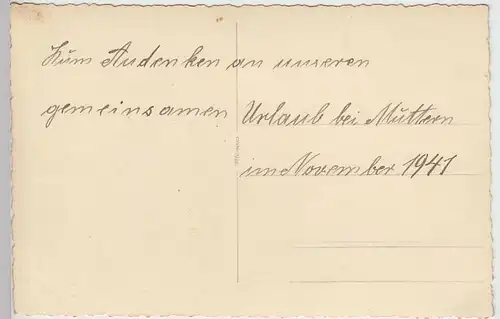 Zum Andenken an unseren
gemeinsamen Urlaub bei Muttern
im November 1941